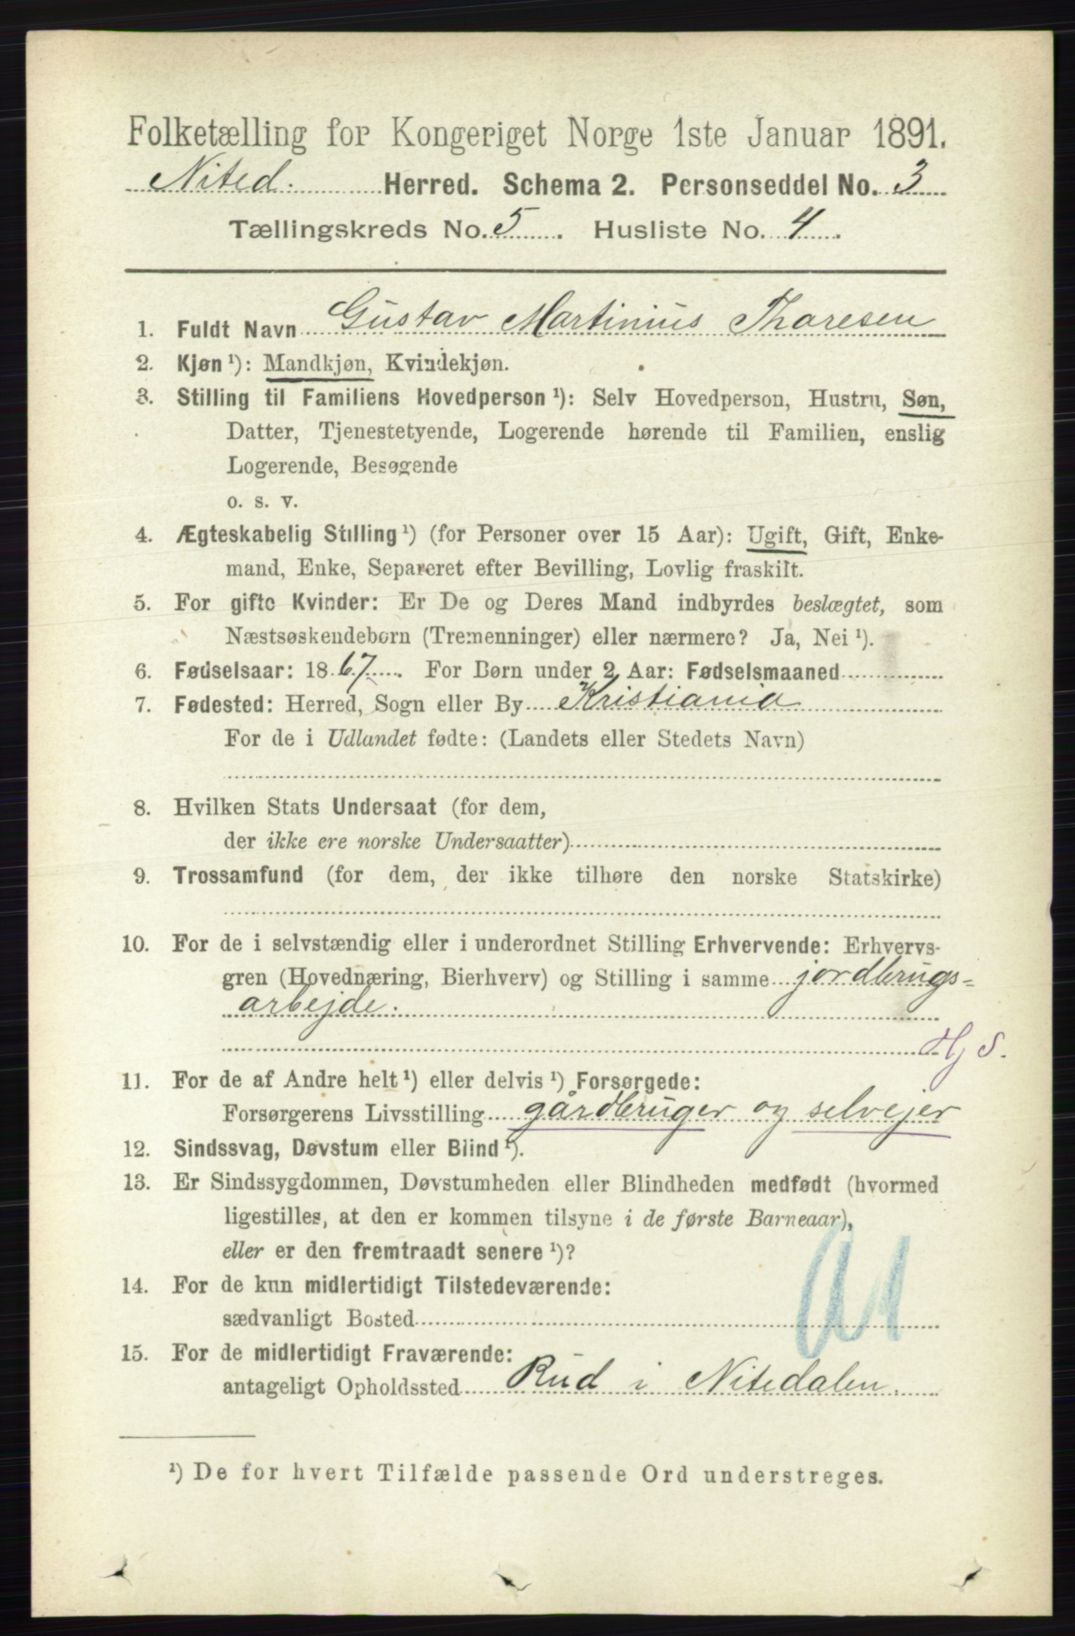 Folketælling for Kongeriget Norge 1ste Januar 1891.
Nited. Herred. Schema 2. Personseddel No. 3
Tællingskreds No. 5. Husliste No. 4.
1. Fuldt Navn Gustav Martinius Thoresen
2. Kjøn ¹): Mandkjøn, Kvindekjøn.
3. Stilling til Familiens Hovedperson ¹): Selv Hovedperson, Hustru, Søn,
Datter, Tjenestetyende, Logerende hørende til Familien, enslig
Logerende, Besøgende
o. s. v.
4. Ægteskabelig Stilling ¹) (for Personer over 15 Aar): Ugift, Gift, Enke-
mand, Enke, Separeret efter Bevilling, Lovlig fraskilt.
5. For gifte Kvinder: Er De og Deres Mand indbyrdes beslægtet, som
Næstsøskendebørn (Tremenninger) eller nærmere? Ja, Nei ¹).
6. Fødselsaar: 1867. For Børn under 2 Aar: Fødselsmaaned
7. Fødested: Herred, Sogn eller By Kristiania
For de i Udlandet fødte: (Landets eller Stedets Navn)
8. Hvilken Stats Undersaat (for dem,
der ikke ere norske Undersaatter)
9. Trossamfund (for dem, der ikke tilhøre den norske Statskirke)
10. For de i selvstændig eller i underordnet Stilling Erhvervende: Erhvervs-
gren (Hovednæring, Bierhverv) og Stilling i samme jordbrugs=
arbejde.
Hj S.
11. For de af Andre helt ¹) eller delvis ¹) Forsørgede:
Forsørgerens Livsstilling gårdbruger og selvejer
12. Sindssvag, Døvstum eller Blind ¹).
13. Er Sindssygdommen, Døvstumheden eller Blindheden medfødt (hvormed
ligestilles, at den er kommen tilsyne i de første Barneaar),
eller er den fremtraadt senere ¹)?
14. For de kun midlertidigt Tilstedeværende:
sædvanligt Bosted
15. For de midlertidigt Fraværende:
antageligt Opholdssted Rud i Nitedalen.
¹) De for hvert Tilfælde passende Ord understreges.